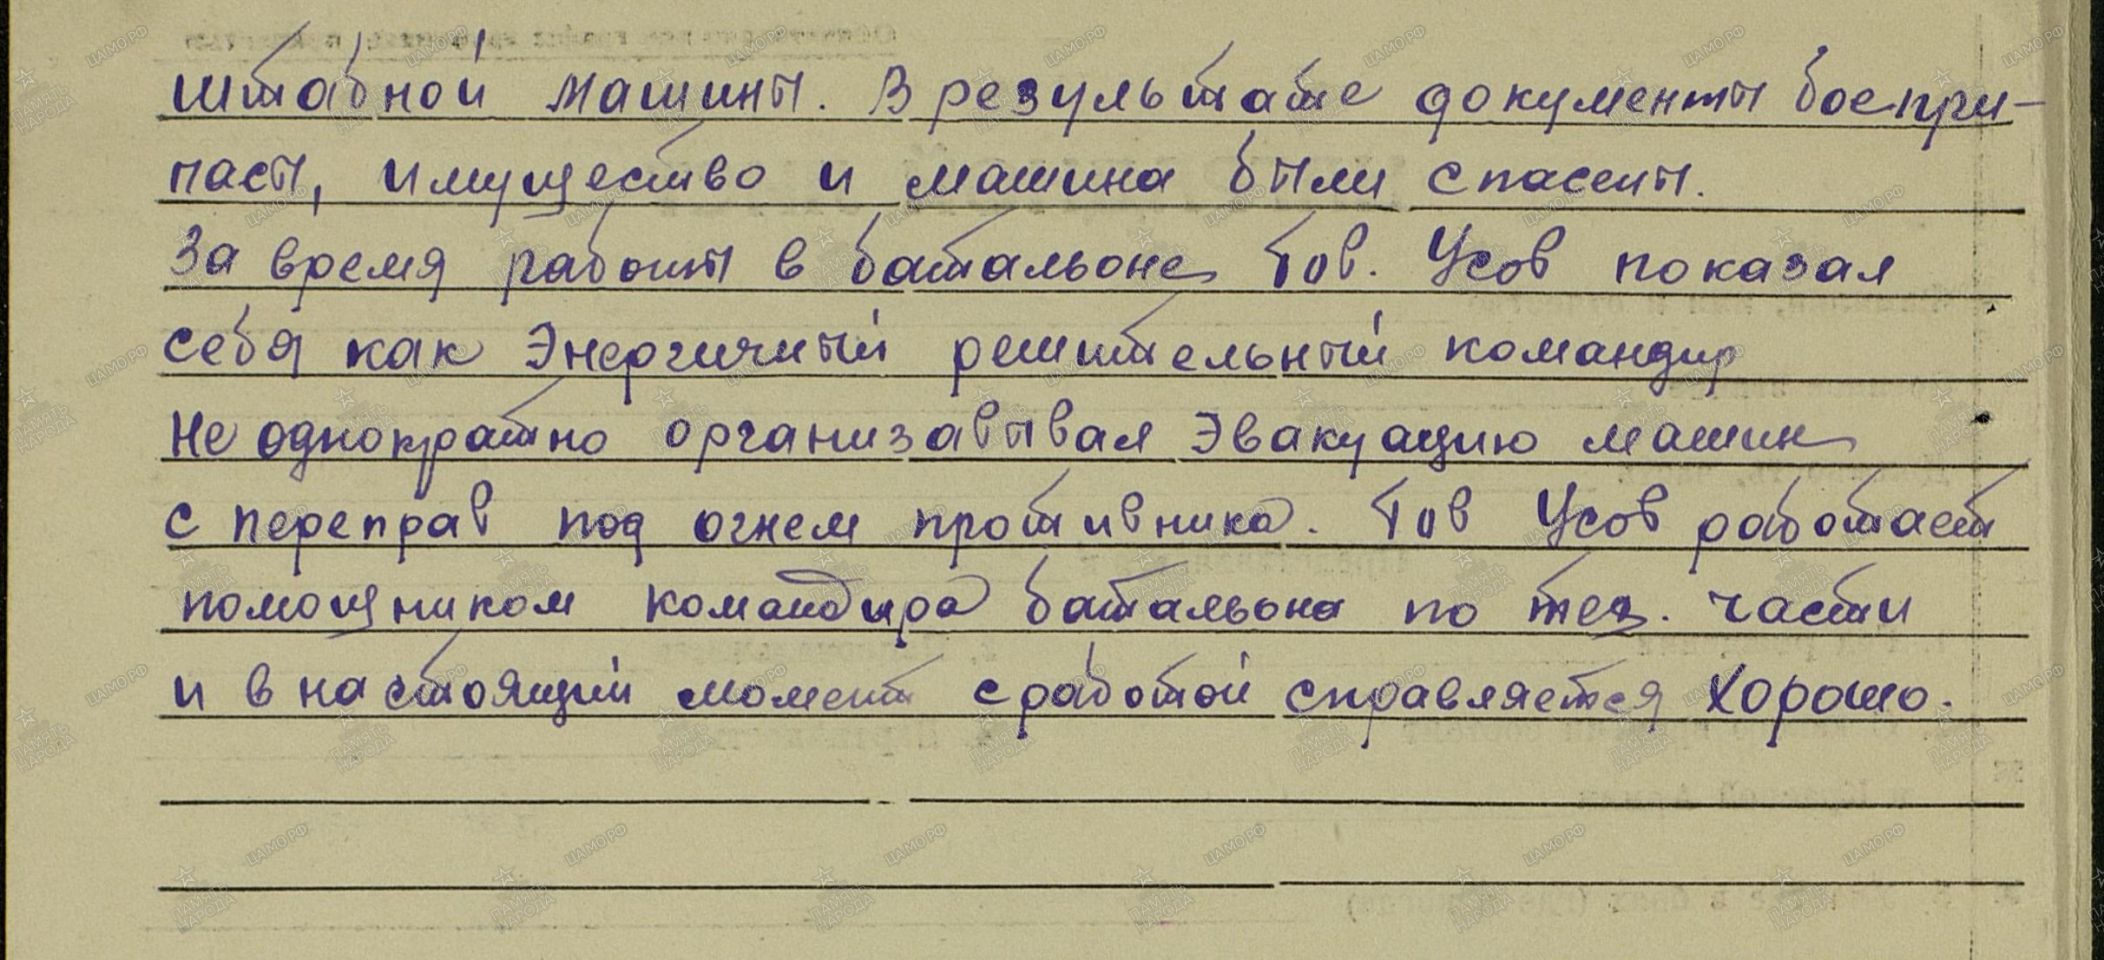 штабной машины. В результате документы боепри-
пасы, имущество и машина были спасены.
За время работы в батальоне тов. Усов показал
себя как энергичный решительный командир
Не однократно организавывал эвакуацию машин
с переправ под огнем противника. Тов Усов работает
помощником командира батальона по тех. части
и в настоящий момент с работой справляется хорошо.